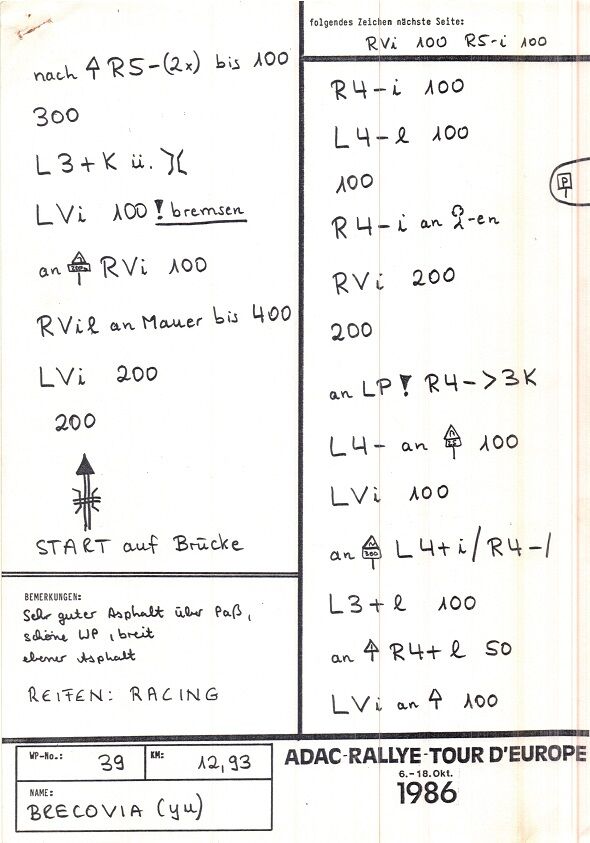 nach R5-(2x) bis 100
300
L3+K ü.
LVi 100 ! bremsen
an RVi 100
RVil an Mauer bis 400
LVi 200
200
START auf Brücke
BEMERKUNGEN:
Sehr guter Asphalt über Paß,
schöne WP, breit
ebener Asphalt
REIFEN: RACING
WP-No.: 39 KM: 12,93
NAME:
BRECOVIA (yu)
folgendes Zeichen nächste Seite:
RVi 100 R5-i 100
R4-i 100
L4-l 100
100
P
R4-i an -en
RVi 200
200
an LP ! R4->3K
L4- an 100
LVi 100
an 300 L4+i/R4-/
L3+l 100
an R4+l 50
LVi an 100
ADAC-RALLYE-TOUR D'EUROPE
6.-18.Okt.
1986